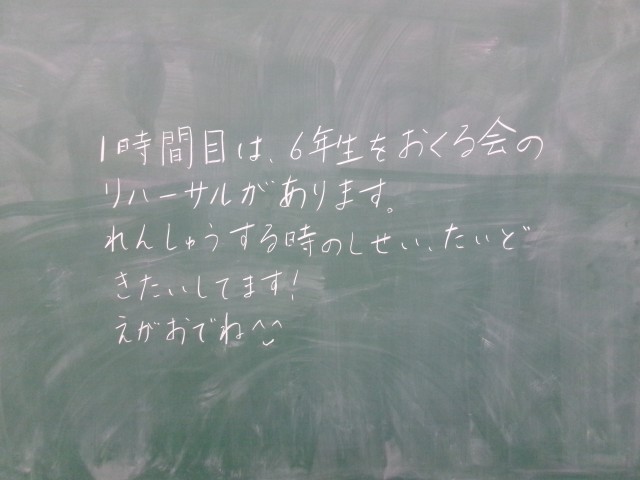 1時間目は、6年生をおくる会の
リハーサルがあります。
れんしゅうする時のしせい、たいど
きたいしてます!
えがおでね^^